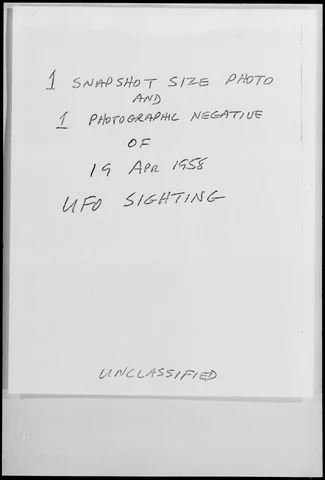 1 SNAPSHOT SIZE PHOTO
AND
1 PHOTOGRAPHIC NEGATIVE
OF
19 APR 1958
UFO SIGHTING
UNCLASSIFIED